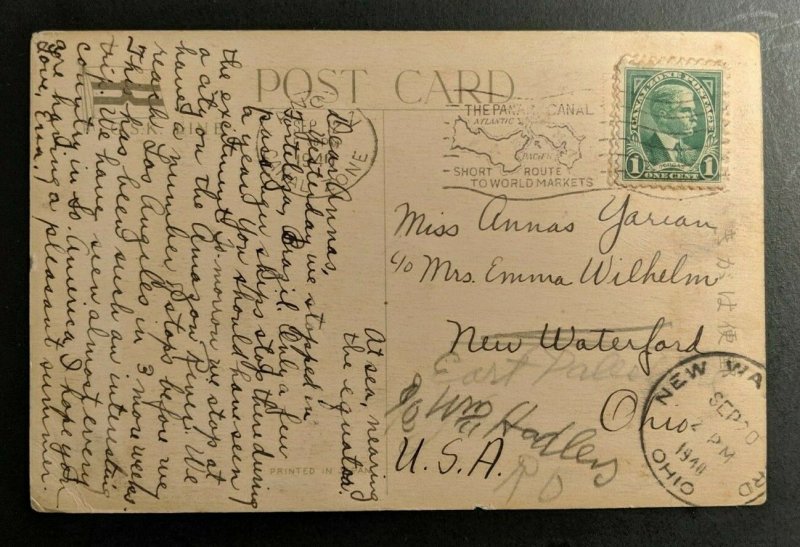 POST CARD
At sea, nearing
the equator.
Dear Annas,
Yesterday we stopped in
Fortileza, Brazil. Only a few
passenger ships stop there during
a year. You should have seen
the excitment! To-morrow we stop at
a city on the Amazon River. We
have number stops before we
reach Los Angeles in 3 more weeks.
This has been such an interesting
trip. We have seen almost every
country in So. America. I hope you
are having a pleasant summer.
Love, Erna.
K LINE
CANAL ZONE
THE PANAMA CANAL
ATLANTIC
PACIFIC
SHORT ROUTE
TO WORLD MARKETS
CANAL ZONE POSTAGE
1 1
ONE CENT
Miss Annas Yarian
c/o Mrs. Emma Wilhelm
New Waterford
East
c/o Wm Hadley
Ohio
R D
U.S.A.
NEW WA RD
SEP 20
2 PM
1940
OHIO
PRINTED IN
きがは便郵